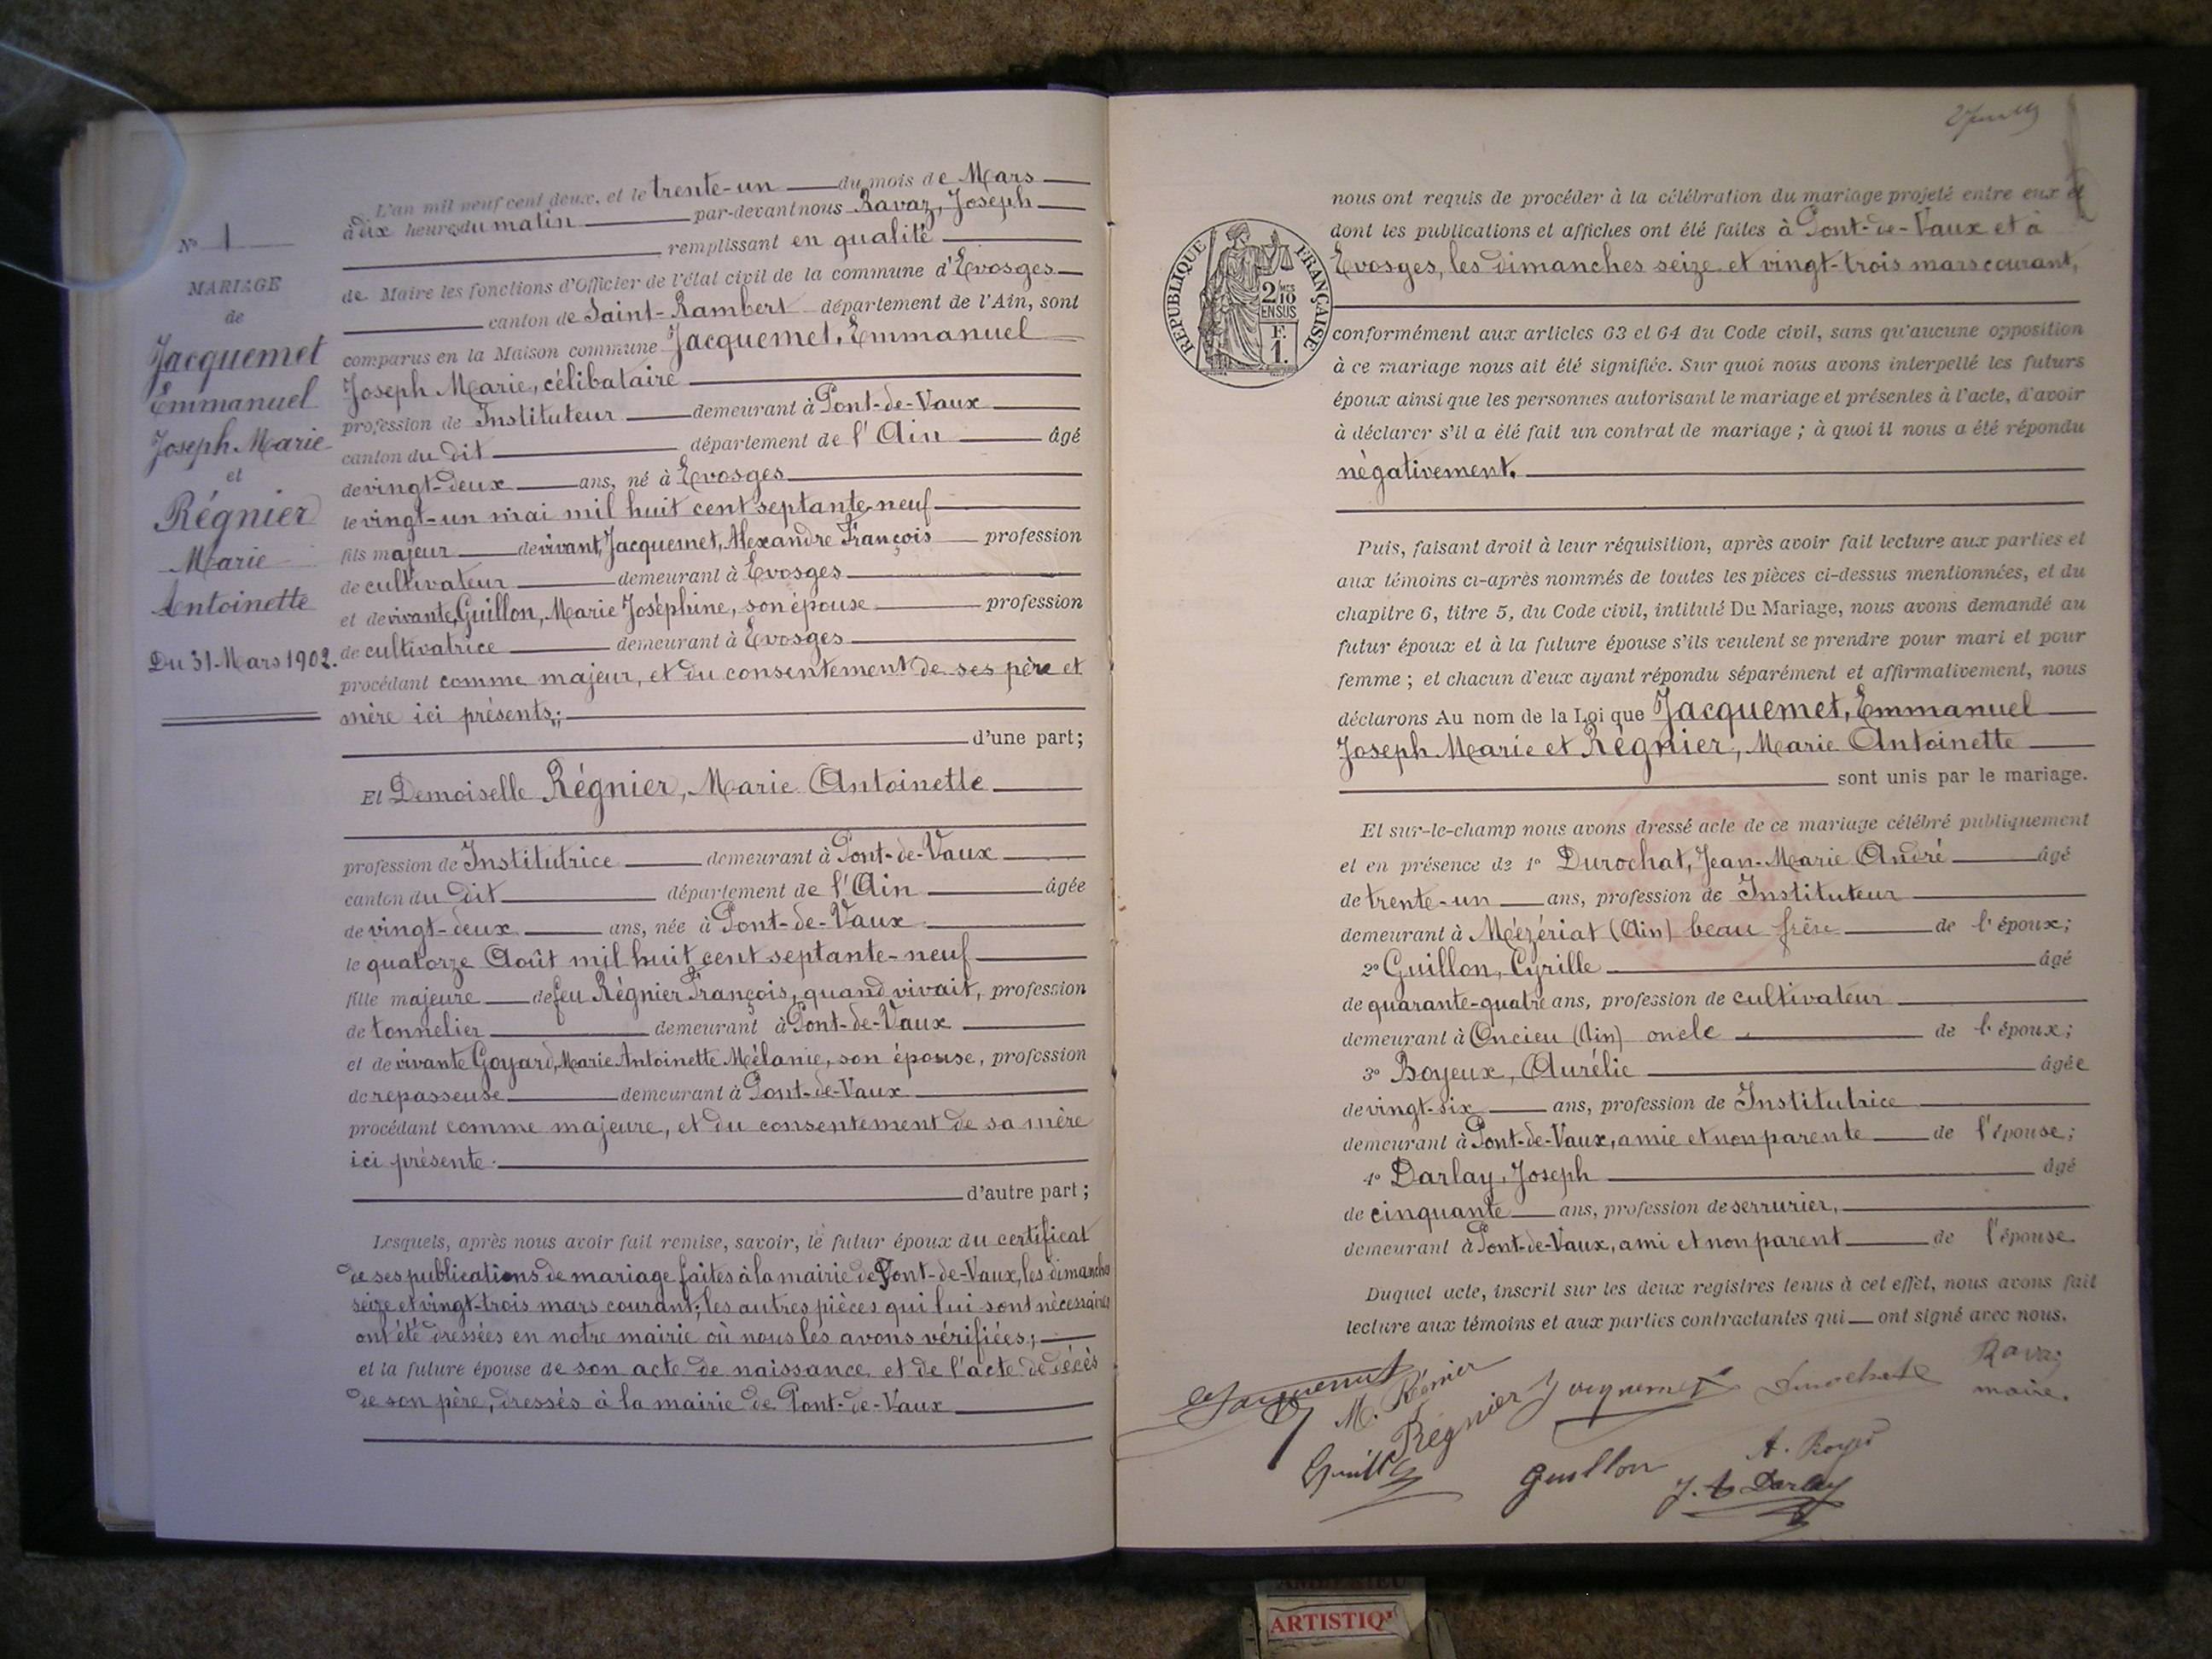 N° 1
MARIAGE
de
Jacquemet
Emmanuel
Joseph Marie
et
Régnier
Marie
Antoinette
Du 31 Mars 1902.
L'an mil neuf cent deux, et le trente-un du mois de Mars
à dix heures du matin par-devant nous Ravaz, Joseph
remplissant en qualité
de Maire les fonctions d'Officier de l'état civil de la commune d'Evosges
canton de Saint-Rambert département de l'Ain, sont
comparus en la Maison commune Jacquemet, Emmanuel
Joseph Marie, célibataire
profession de Instituteur demeurant à Pont-de-Vaux
canton du dit département de l'Ain âgé
de vingt-deux ans, né à Evosges
le vingt-un mai mil huit cent septante-neuf
fils majeur de vivant, Jacquemet, Alexandre François profession
de cultivateur demeurant à Evosges
et de vivante, Guillon, Marie Joséphine, son épouse profession
de cultivatrice demeurant à Evosges
procédant comme majeur, et du consentement de ses père et
mère ici présents;
d'une part;
Et Demoiselle Régnier, Marie Antoinette
profession de Institutrice demeurant à Pont-de-Vaux
canton du dit département de l'Ain âgée
de vingt-deux ans, née à Pont-de-Vaux
le quatorze Août mil huit cent septante-neuf
fille majeure de feu Régnier François, quand vivait, profession
de tonnelier demeurant à Pont-de-Vaux
et de vivante Goyard, Marie Antoinette Mélanie, son épouse, profession
de repasseuse demeurant à Pont-de-Vaux
procédant comme majeure, et du consentement de sa mère
ici présente.
d'autre part;
Lesquels, après nous avoir fait remise, savoir, le futur époux du certificat
de ses publications de mariage faites à la mairie de Pont-de-Vaux, les dimanches
seize et vingt-trois mars courant; les autres pièces qui lui sont nécessaires
ont été dressées en notre mairie où nous les avons vérifiées;
et la future épouse de son acte de naissance et de l'acte de décès
de son père, dressés à la mairie de Pont-de-Vaux
nous ont requis de procéder à la célébration du mariage projeté entre eux et
dont les publications et affiches ont été faites à Pont-de-Vaux et à
Evosges, les dimanches seize et vingt-trois mars courant,
REPUBLIQUE FRANÇAISE
2/10 MES
EN SUS
F.
1.
conformément aux articles 63 et 64 du Code civil, sans qu'aucune opposition
à ce mariage nous ait été signifiée. Sur quoi nous avons interpellé les futurs
époux ainsi que les personnes autorisant le mariage et présentes à l'acte, d'avoir
à déclarer s'il a été fait un contrat de mariage ; à quoi il nous a été répondu
négativement.
Puis, faisant droit à leur réquisition, après avoir fait lecture aux parties et
aux témoins ci-après nommés de toutes les pièces ci-dessus mentionnées, et du
chapitre 6, titre 5, du Code civil, intitulé Du Mariage, nous avons demandé au
futur époux et à la future épouse s'ils veulent se prendre pour mari et pour
femme ; et chacun d'eux ayant répondu séparément et affirmativement, nous
déclarons Au nom de la Loi que Jacquemet, Emmanuel
Joseph Marie et Régnier, Marie Antoinette
sont unis par le mariage.
Et sur-le-champ nous avons dressé acte de ce mariage célébré publiquement
et en présence de 1° Durochat, Jean-Marie André âgé
de trente-un ans, profession de Instituteur
demeurant à Mézériat (Ain) beau frère de l'époux;
2° Guillon, Cyrille âgé
de quarante-quatre ans, profession de cultivateur
demeurant à Oncieu (Ain) oncle de l'époux;
3° Boyeux, Aurélie âgée
de vingt-six ans, profession de Institutrice
demeurant à Pont-de-Vaux, amie et non parente de l'épouse;
4° Darlay, Joseph âgé
de cinquante ans, profession de serrurier,
demeurant à Pont-de-Vaux, ami et non parent de l'épouse
Duquel acte, inscrit sur les deux registres tenus à cet effet, nous avons fait
lecture aux témoins et aux parties contractantes qui ont signé avec nous.
Jacquemet M. Régnier Jacquemet Durochat Ravaz
maire.
Régnier
Guillon
A. Boyeux
Darlay
ARTISTIQ